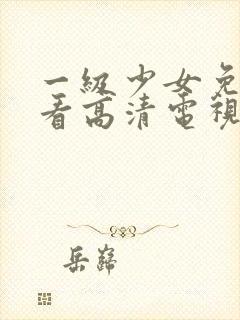 一級少女免
看高清電視
岳巋